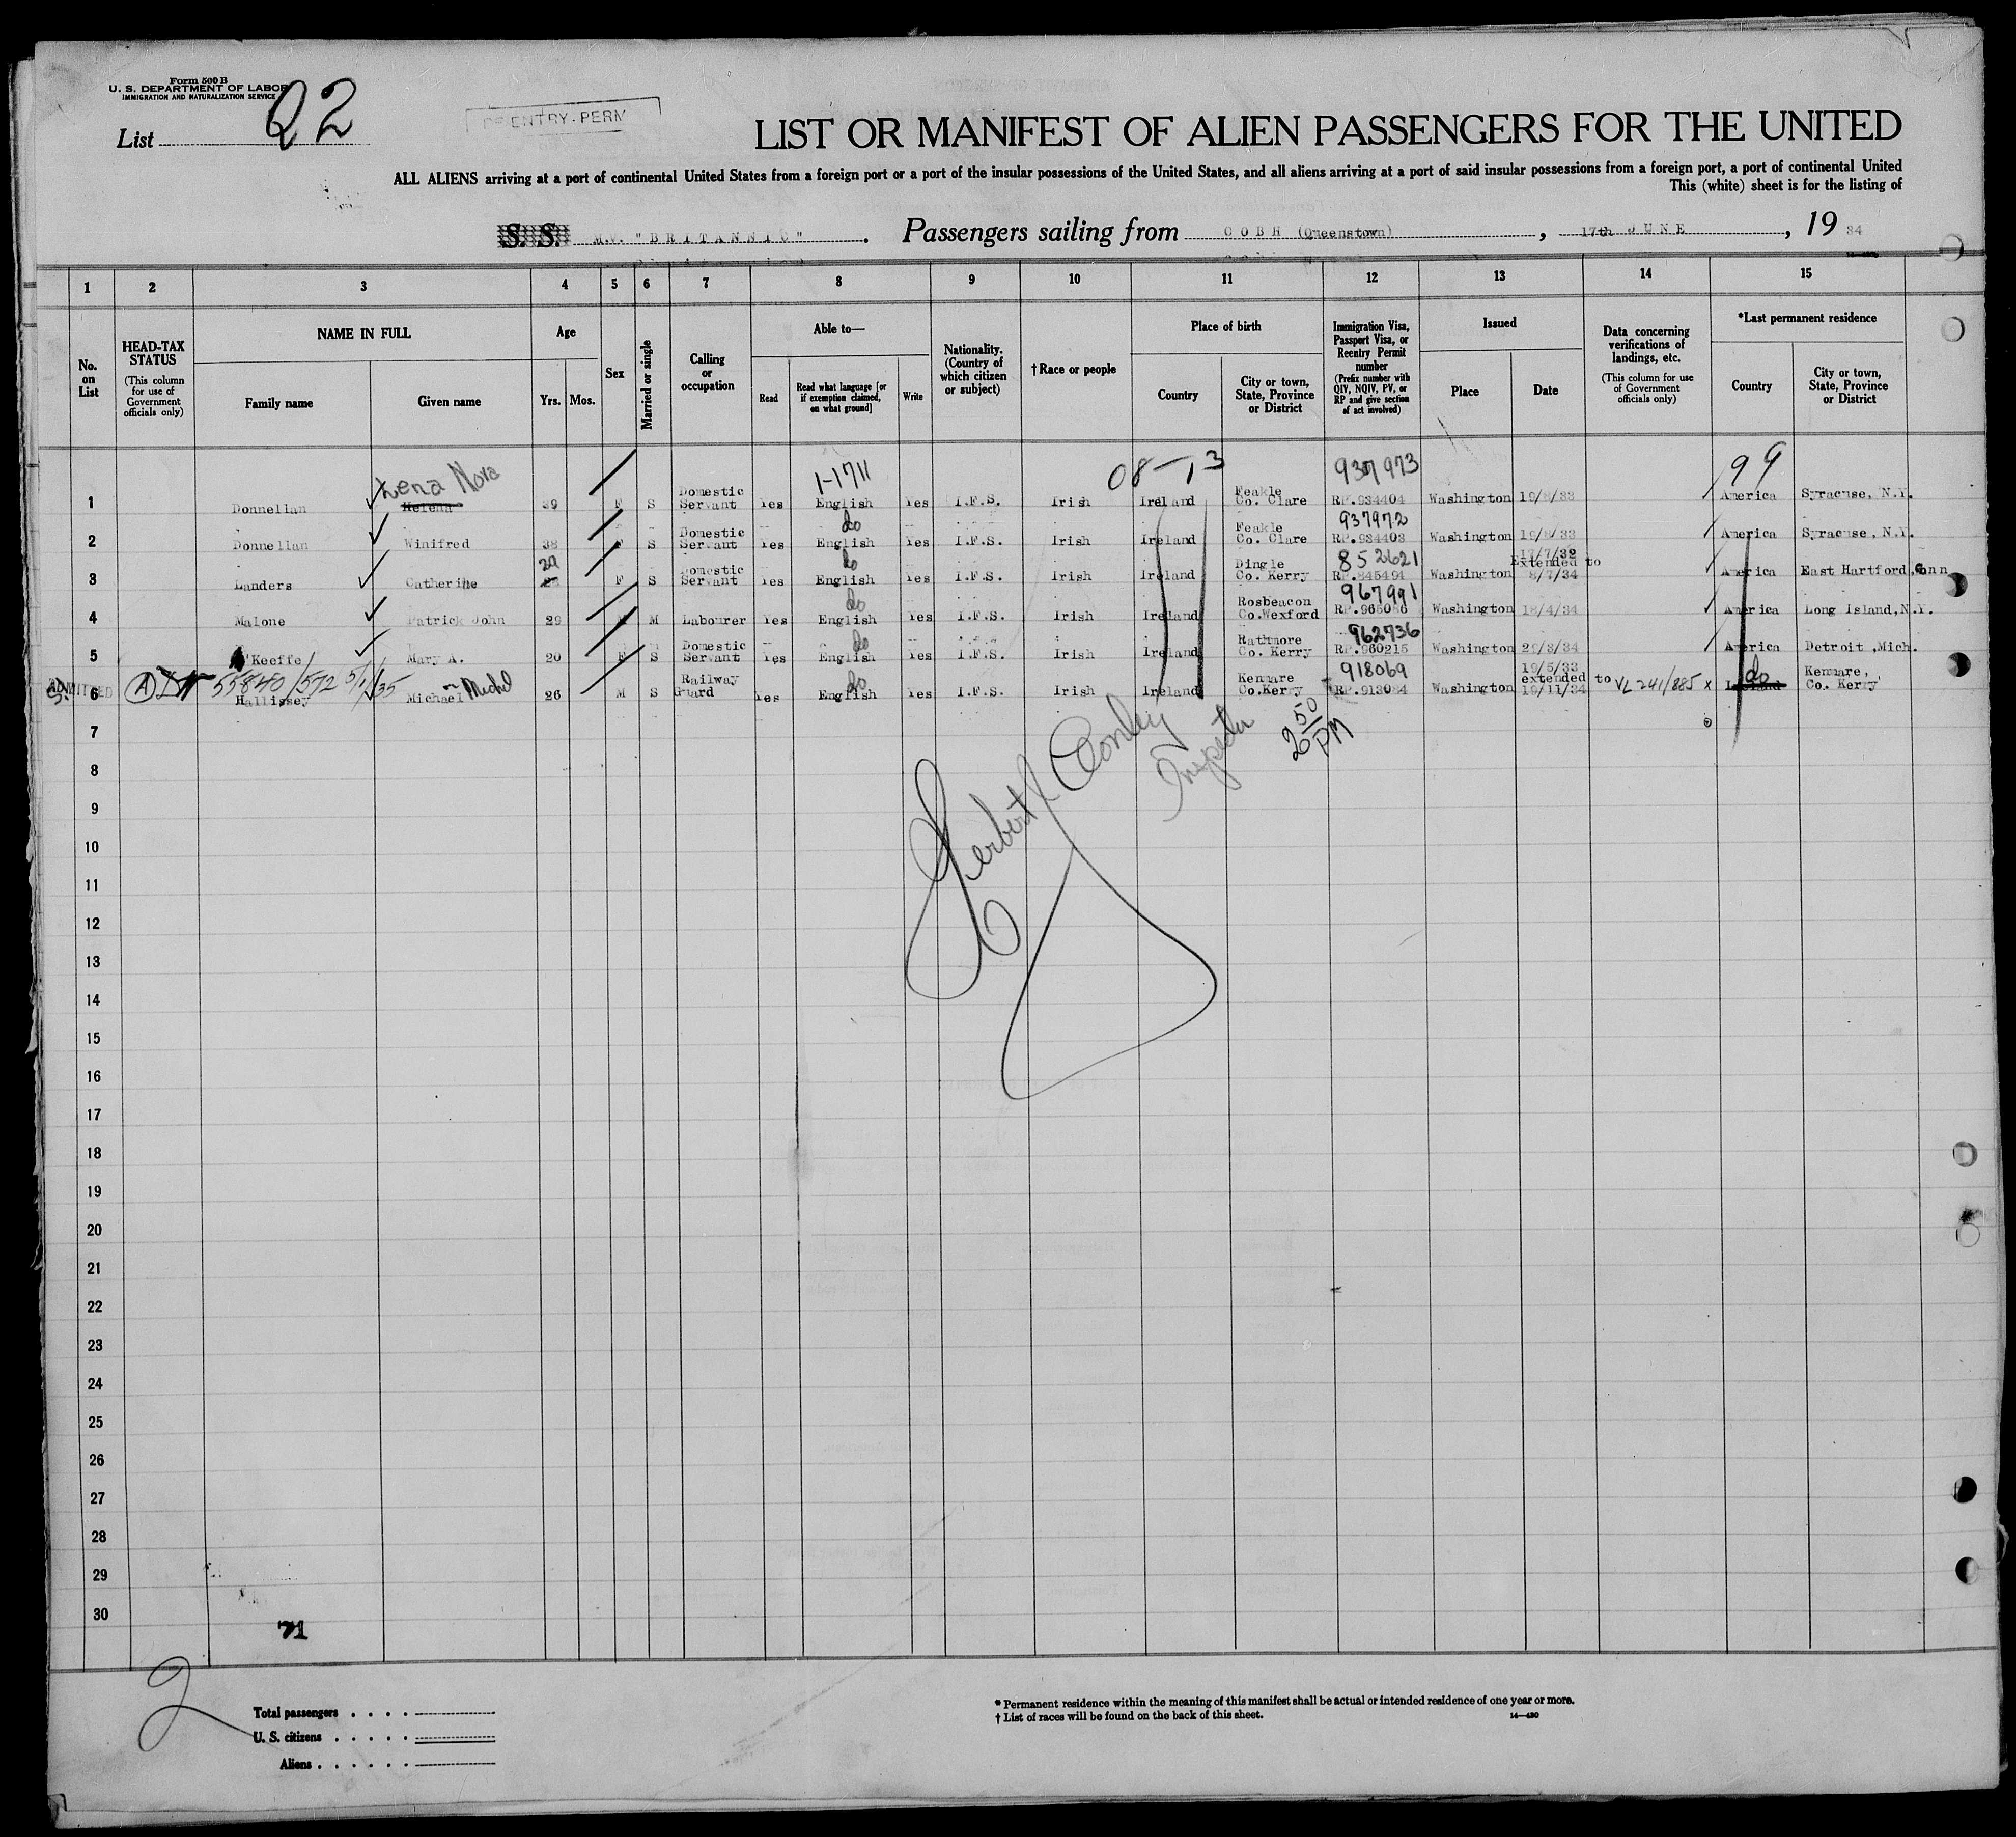 Form 500 B
U. S. DEPARTMENT OF LABOR
IMMIGRATION AND NATURALIZATION SERVICE
List 22
LIST OR MANIFEST OF ALIEN PASSENGERS FOR THE UNITED
ALL ALIENS arriving at a port of continental United States from a foreign port or a port of the insular possessions of the United States, and all aliens arriving at a port of said insular possessions from a foreign port, a port of continental United
This (white) sheet is for the listing of
S. S. M.V. "BRITANNIC". Passengers sailing from COBH (Queenstown), 17th JUNE, 1934
1 2 3 4 5 6 7 8 9 10 11 12 13 14 15
No. on List
HEAD-TAX STATUS
(This column for use of Government officials only)
NAME IN FULL
Family name
Given name
Age
Yrs. Mos.
Sex
Married or single
Calling or occupation
Able to—
Read
Read what language [or if exemption claimed, on what ground]
Write
Nationality. (Country of which citizen or subject)
†Race or people
Place of birth
Country
City or town, State, Province or District
Immigration Visa, Passport Visa, or Reentry Permit number
(Prefix number with QIV, NQIV, PV, or RP and give section of act involved)
Issued
Place
Date
Data concerning verifications of landings, etc.
(This column for use of Government officials only)
*Last permanent residence
Country
City or town, State, Province or District
Lena Nora 1-1711 08-13 937973 99
1 Donnellan Helena 39 F S Domestic Servant Yes English Yes I.F.S. Irish Ireland Feakle Co. Clare RP.934404 Washington 19/8/33 America Syracuse, N.Y.
do 937972
2 Donnellan Winifred 38 F S Domestic Servant Yes English Yes I.F.S. Irish Ireland Feakle Co. Clare RP.934403 Washington 19/8/33 America Syracuse, N.Y.
29 do 852621
3 Landers Catherine F S Domestic Servant Yes English Yes I.F.S. Irish Ireland Dingle Co. Kerry RP.845491 Washington Extended to 8/7/34 America East Hartford, Conn
do 967991
4 Malone Patrick John 29 M M Labourer Yes English Yes I.F.S. Irish Ireland Rosbeacon Co.Wexford RP.965056 Washington 18/4/34 America Long Island, N.Y.
do 962736
5 O'Keeffe Mary A. 20 F S Domestic Servant Yes English Yes I.F.S. Irish Ireland Rathmore Co. Kerry RP.960215 Washington America Detroit, Mich.
ADMITTED 55840/572 5/1/35 or Michel do 918069 do
6 Hallissey Michael 26 M S Railway Guard Yes English Yes I.F.S. Irish Ireland Kenmare Co.Kerry RP.913084 Washington 19/5/33 extended to 19/11/34 VL 241/885 x Ireland Kenmare, Co. Kerry
7
8
9
10
11
12
13
14
15
16
17
18
19
20
21
22
23
24
25
26
27
28
29
30
Inspector
2 50 PM
71
2
Total passengers
U. S. citizens
Aliens
* Permanent residence within the meaning of this manifest shall be actual or intended residence of one year or more.
† List of races will be found on the back of this sheet.
14—430